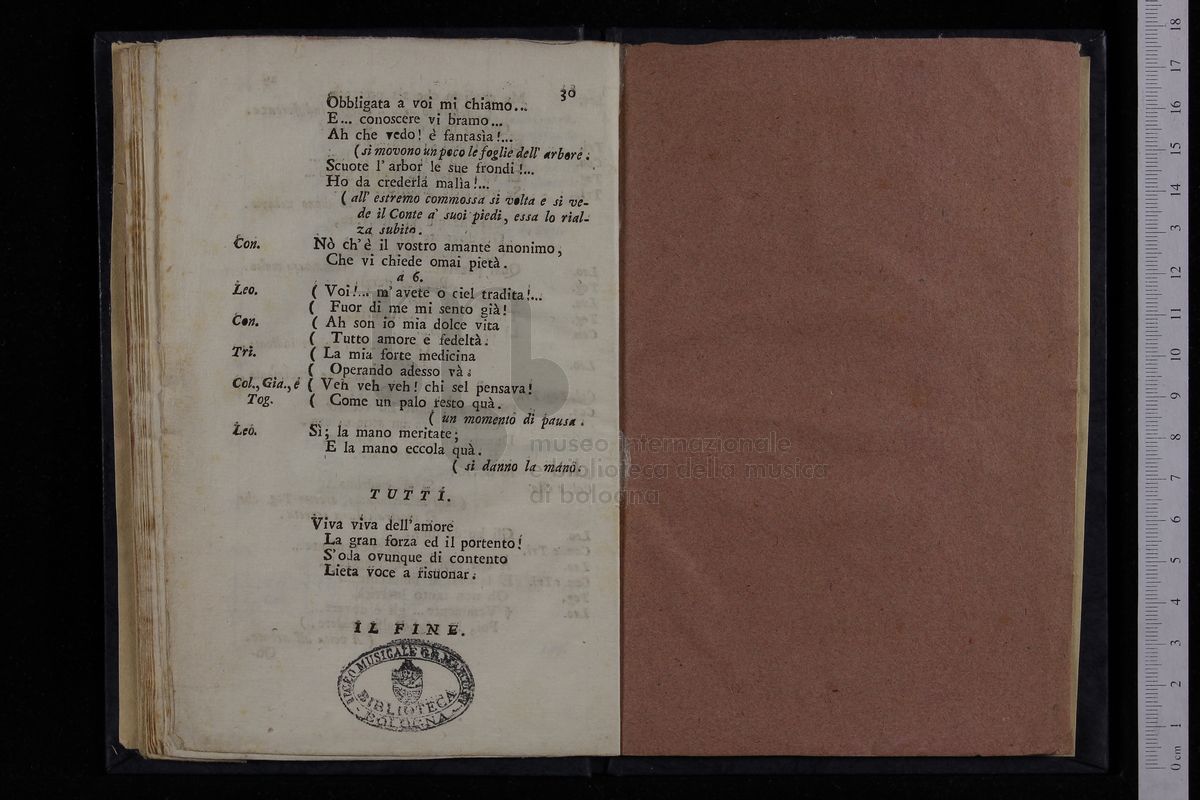 30
Obbligata a voi mi chiamo...
E... conoscere vi bramo...
Ah che vedo! è fantasìa!...
(si movono un poco le foglie dell' arbore.
Scuote l' arbor le sue frondi!...
Ho da crederla malìa!...
( all' estremo commossa si volta e si ve-
de il Conte a' suoi piedi, essa lo rial-
za subito.
Con. Nò ch'è il vostro amante anonimo,
Che vi chiede omai pietà.
a 6.
Leo. ( Voi!... m'avete o ciel tradita!...
( Fuor di me mi sento già!
Con. ( Ah son io mia dolce vita
( Tutto amore e fedeltà.
Tri. ( La mia forte medicina
( Operando adesso và.
Col., Gia., é ( Veh veh veh! chi sel pensava!
Tog. ( Come un palo resto quà.
( un momento di pausa.
Leo. Sì; la mano meritate;
E la mano eccola quà.
( si danno la mano.
TUTTI.
Viva viva dell'amore
La gran forza ed il portento!
S'oda ovunque di contento
Lieta voce a risuonar.
IL FINE.
LICEO MUSICALE G.B. MARTINI
BIBLIOTECA
- BOLOGNA -
museo internazionale
e biblioteca della musica
di bologna
18
17
16
15
14
13
12
11
10
9
8
7
6
5
4
3
2
1
0 cm